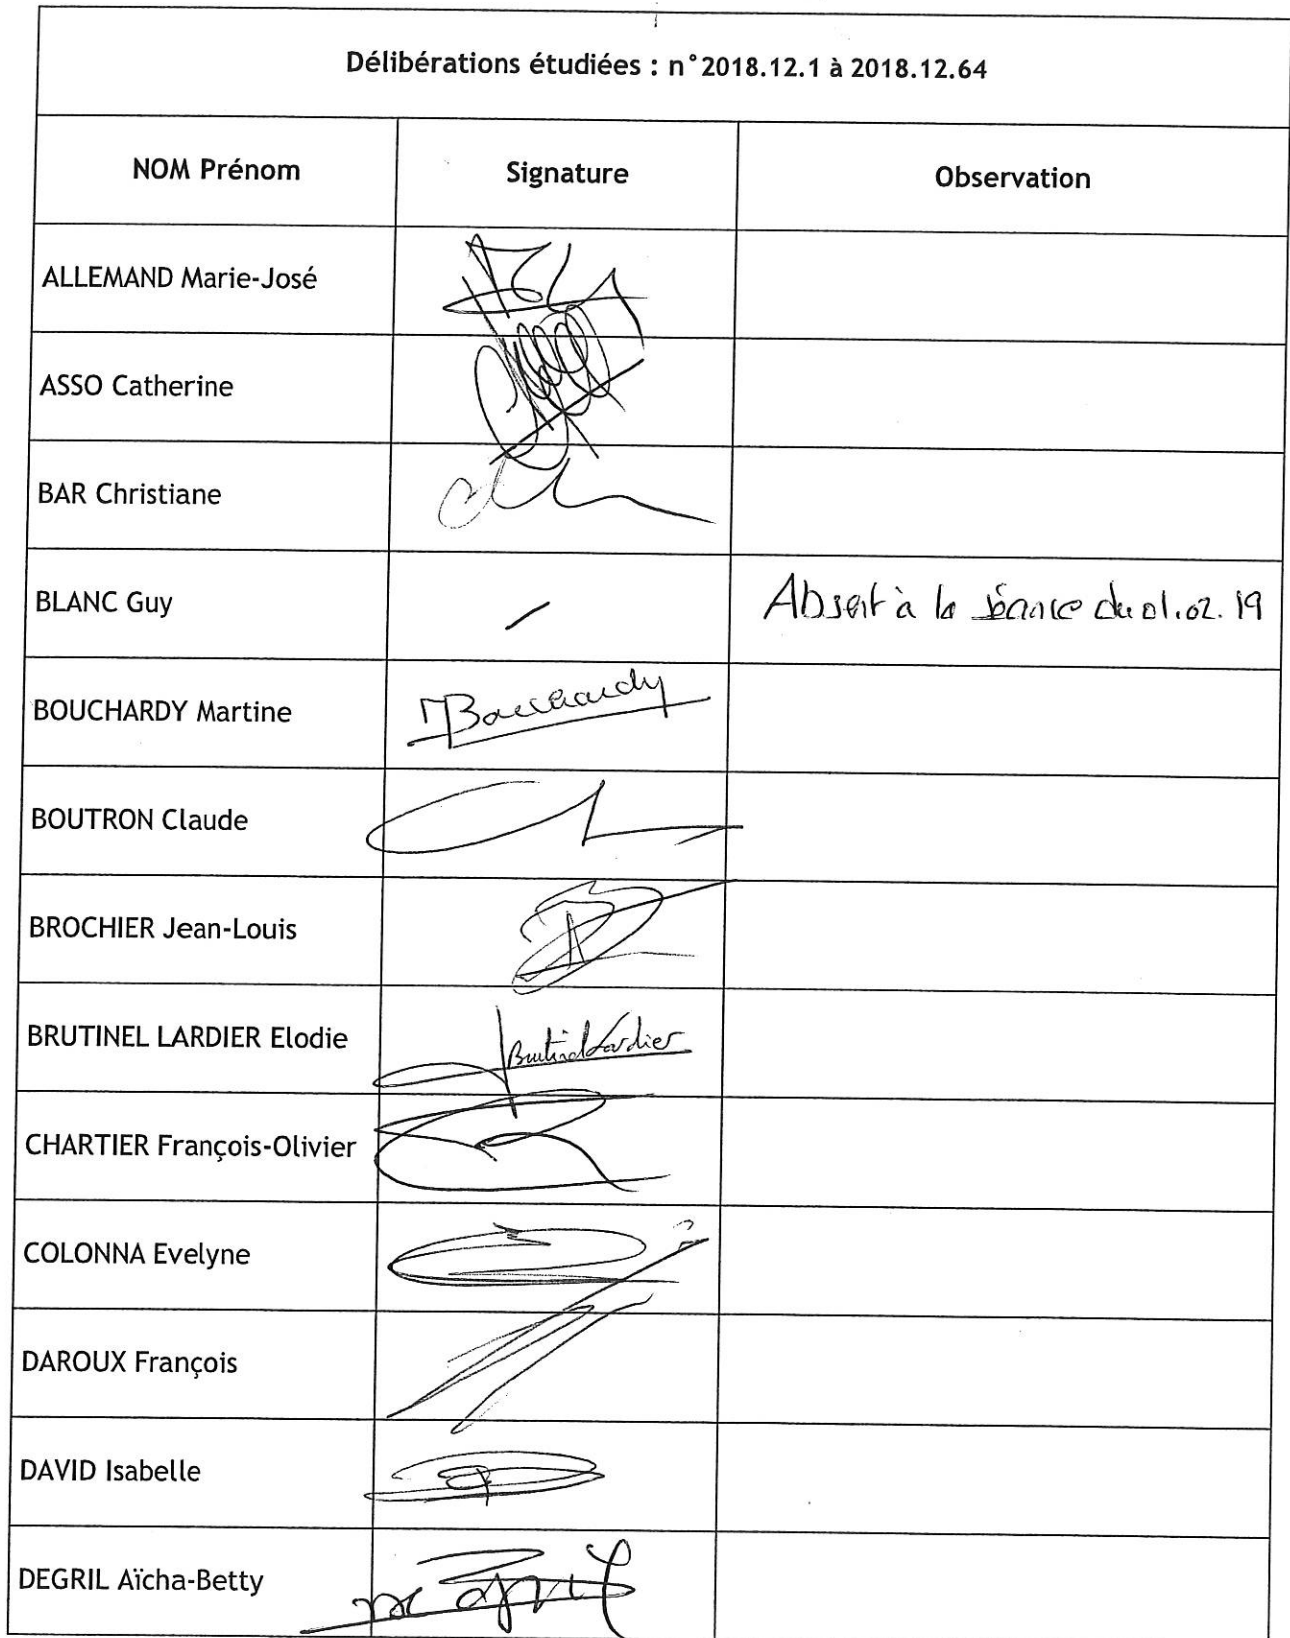 Délibérations étudiées : n°2018.12.1 à 2018.12.64
NOM Prénom Signature Observation
ALLEMAND Marie-José
ASSO Catherine
BAR Christiane
BLANC Guy Absent à la séance du 01.02.19
BOUCHARDY Martine MBouchardy
BOUTRON Claude
BROCHIER Jean-Louis
BRUTINEL LARDIER Elodie Brutinel Lardier
CHARTIER François-Olivier
COLONNA Evelyne
DAROUX François
DAVID Isabelle
DEGRIL Aïcha-Betty